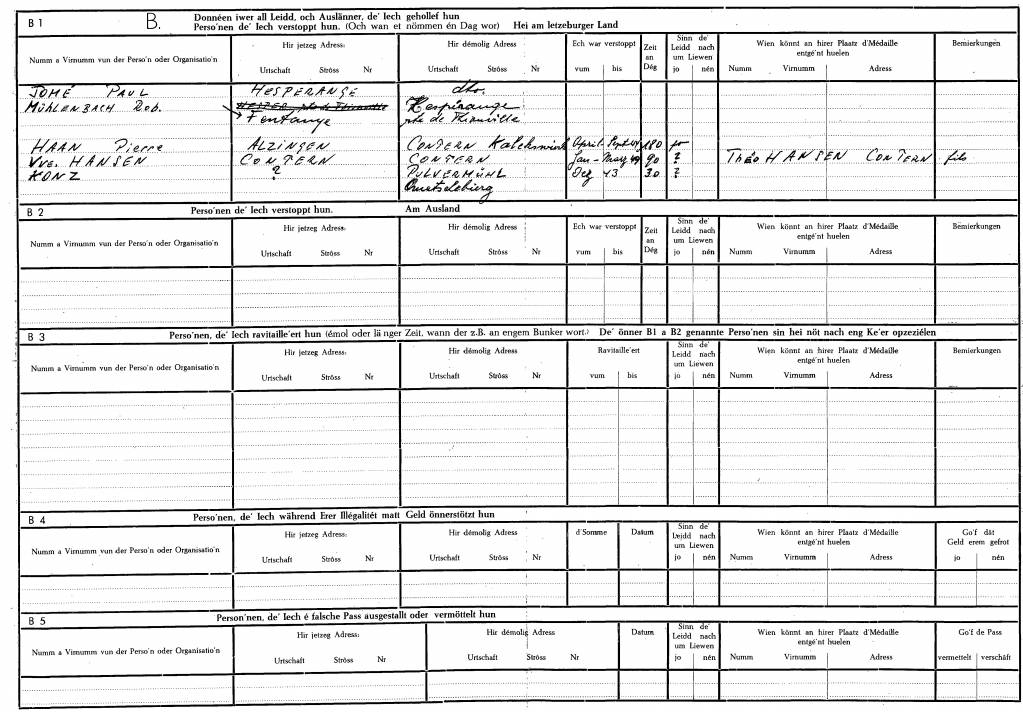 B 1 B. Donnéen iwer all Leidd, och Auslänner, de' Iech gehollef hun
Perso'nen de' Iech verstoppt hun. (Och wan et nömmen én Dag wor) Hei am letzeburger Land
Numm a Virnumm vun der Perso'n oder Organisatio'n
Hir jetzeg Adress:
Urtschaft Ströss Nr
Hir démolig Adress
Urtschaft Ströss Nr
Ech war verstoppt
vum bis
Zeit an Dég
Sinn de' Leidd nach um Liewen
jo nén
Wien könnt an hirer Plaatz d'Médaille entgé'nt huelen
Numm Virnumm Adress
Bemierkungen
JOMÉ PAUL HESPERANGE dto.
MÜHLENBACH Rob. Hesperange
Fentange rte de Thionville
HAAN Pierre ALZINGEN CONTERN April - Sept 44 180 jo
Vve. HANSEN CONTERN CONTERN Jan - 90 ? Théo HANSEN CONTERN fils
KONZ ? PULVERMÜHL Dez 43 30 ?
B 2 Perso'nen de' Iech verstoppt hun. Am Ausland
Numm a Virnumm vun der Perso'n oder Organisatio'n
Hir jetzeg Adress:
Urtschaft Ströss Nr
Hir démolig Adress
Urtschaft Ströss Nr
Ech war verstoppt
vum bis
Zeit an Dég
Sinn de' Leidd nach um Liewen
jo nén
Wien könnt an hirer Plaatz d'Médaille entgé'nt huelen
Numm Virnumm Adress
Bemierkungen
B 3 Perso'nen, de' Iech ravitaille'ert hun (émol oder länger Zeit, wann der z.B. an engem Bunker wort.) De' önner B1 a B2 genannte Perso'nen sin hei nöt nach eng Ke'er opzeziélen
Numm a Virnumm vun der Perso'n oder Organisatio'n
Hir jetzeg Adress:
Urtschaft Ströss Nr
Hir démolig Adress
Urtschaft Ströss Nr
Ravitaille'ert
vum bis
Sinn de' Leidd nach um Liewen
jo nén
Wien könnt an hirer Plaatz d'Médaille entgé'nt huelen
Numm Virnumm Adress
Bemierkungen
B 4 Perso'nen, de' Iech während Erer Illégalitét matt Geld önnerstötzt hun
Numm a Virnumm vun der Perso'n oder Organisatio'n
Hir jetzeg Adress:
Urtschaft Ströss Nr
Hir démolig Adress
Urtschaft Ströss Nr
d'Somme
Datum
Sinn de' Leidd nach um Liewen
jo nén
Wien könnt an hirer Plaatz d'Médaille entgé'nt huelen
Numm Virnumm Adress
Go'f dât Geld erem gefrot
jo nén
B 5 Person'nen, de' Iech é falsche Pass ausgestallt oder vermöttelt hun
Numm a Virnumm vun der Perso'n oder Organisatio'n
Hir jetzeg Adress:
Urtschaft Ströss Nr
Hir démolig Adress
Urtschaft Ströss Nr
Datum
Sinn de' Leidd nach um Liewen
jo nén
Wien könnt an hirer Plaatz d'Médaille entgé'nt huelen
Numm Virnumm Adress
Go'f de Pass
vermettelt verschäft